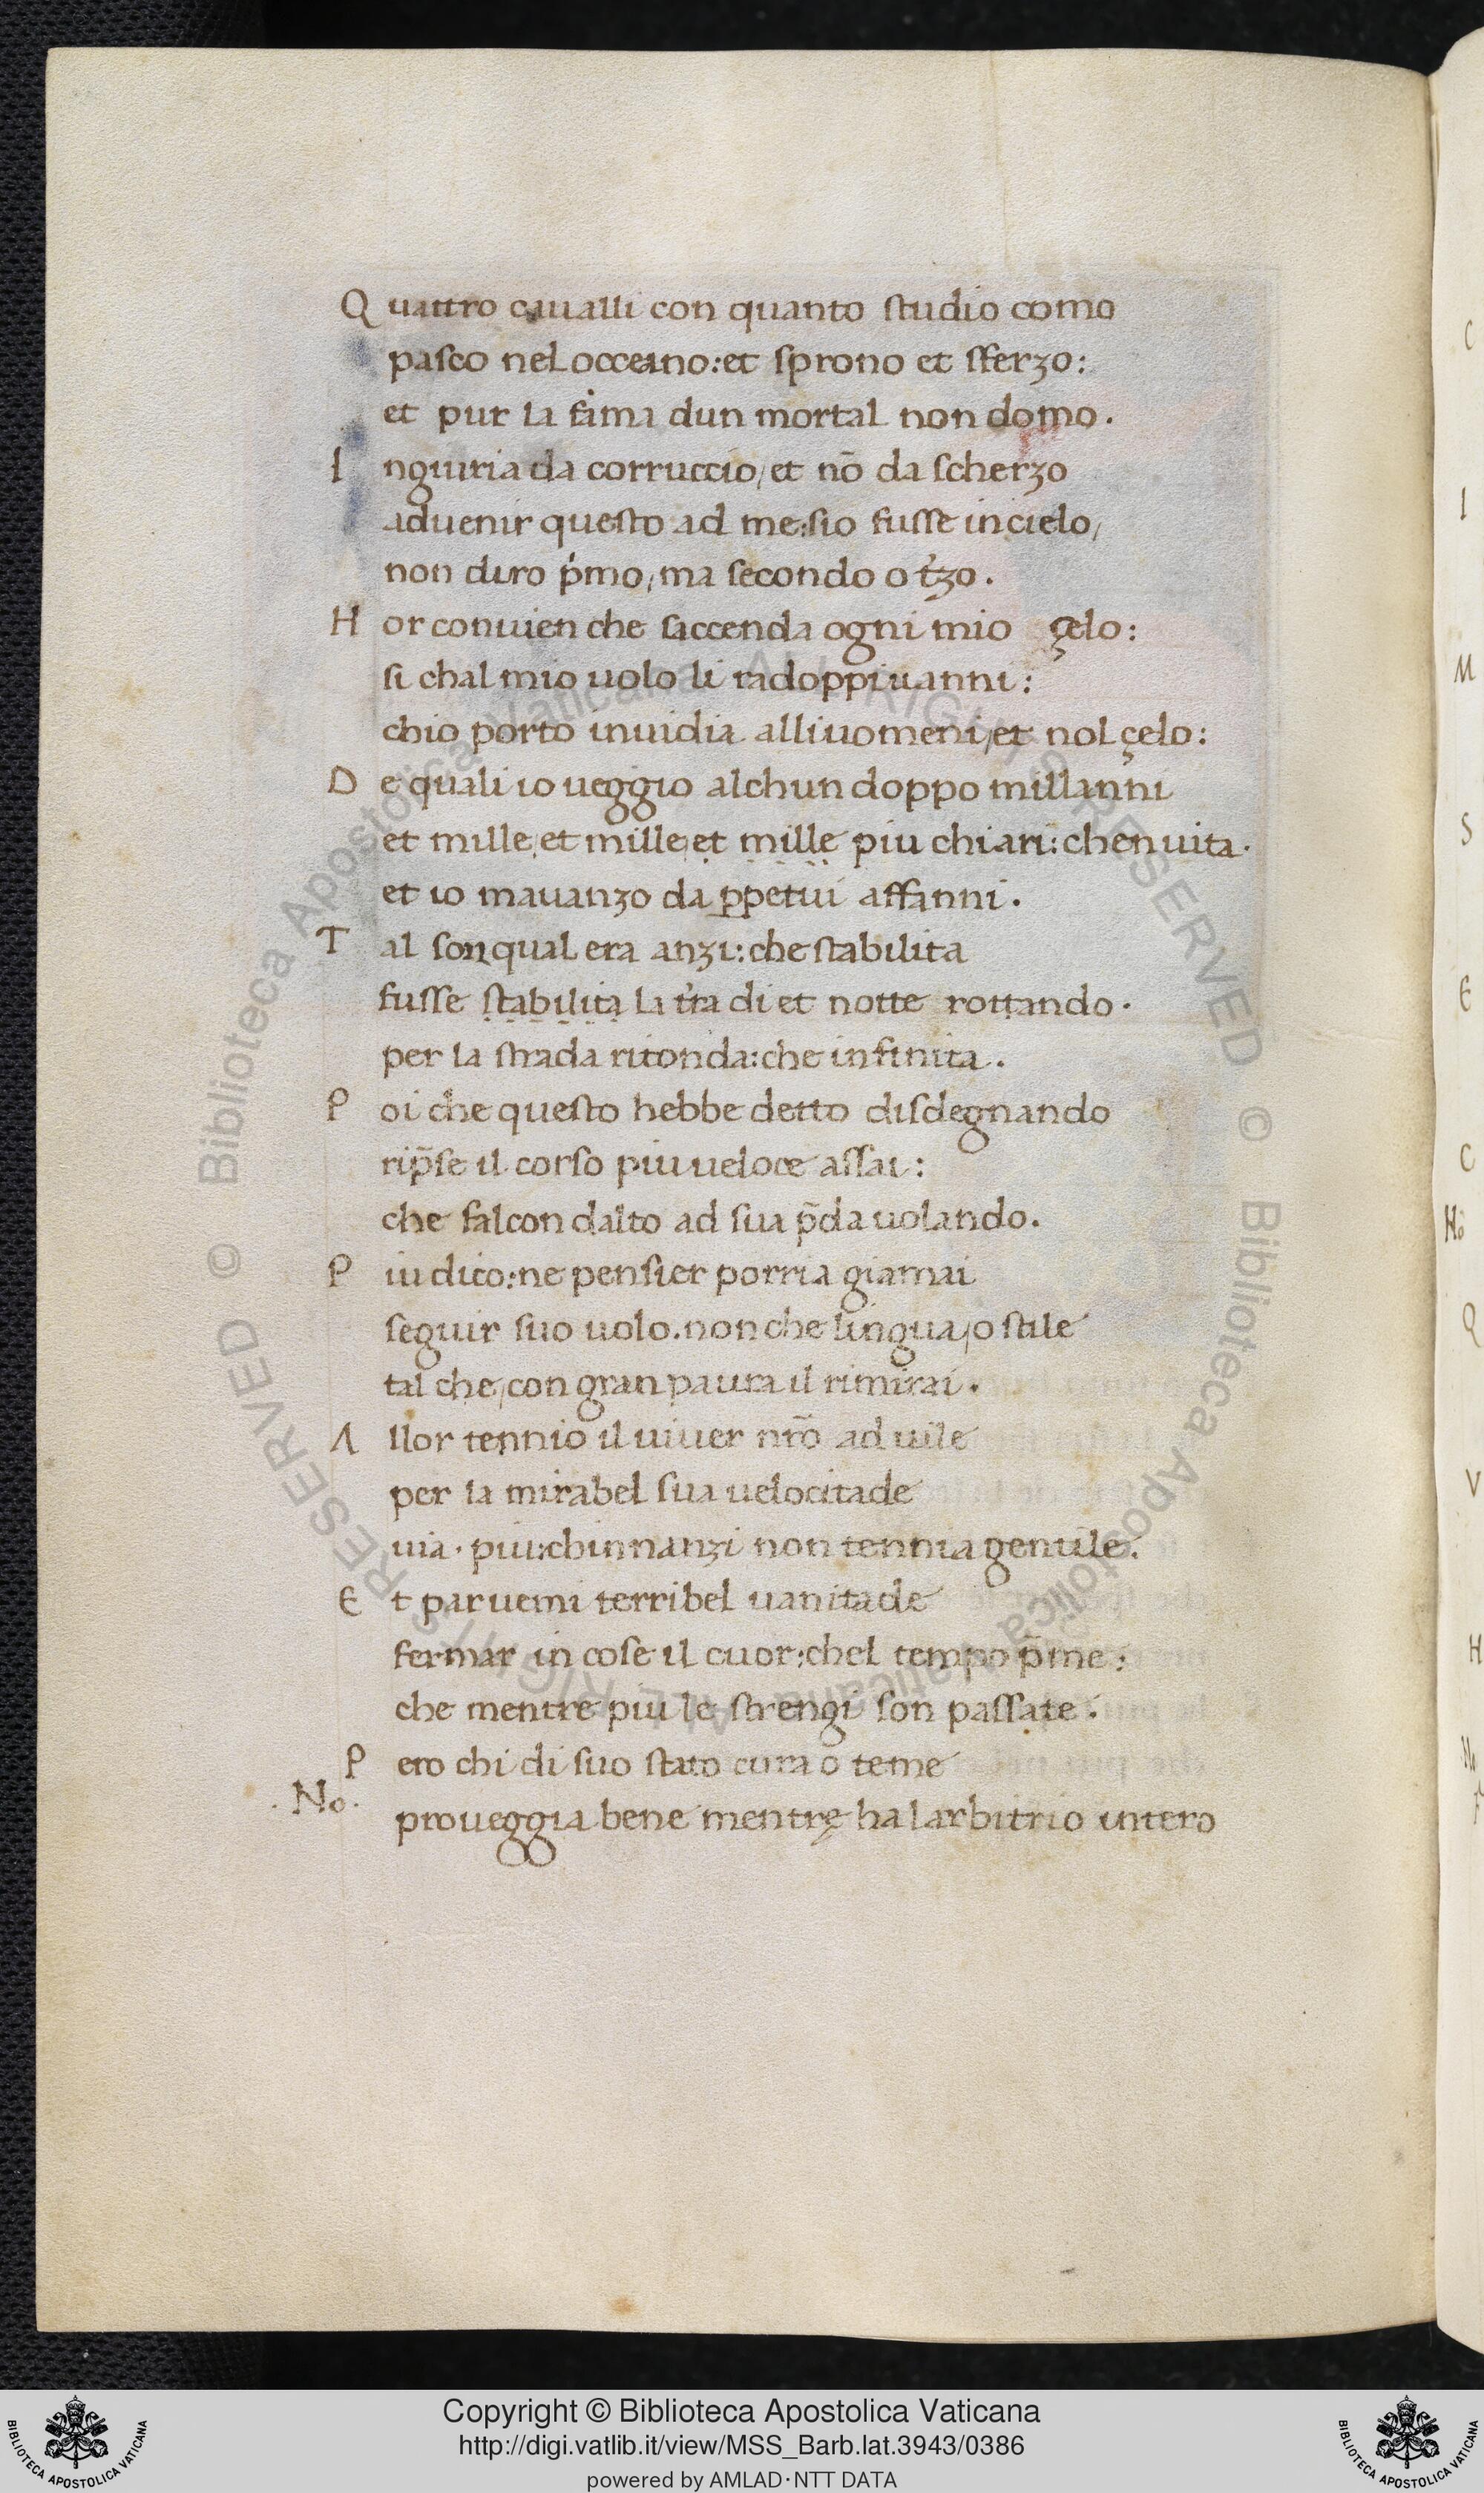 Q uattro caualli con quanto ſtudio como
paſco nel occeano: et ſprono et ſferzo:
et pur la fama dun mortal non domo.
I ngiuria da corruccio/ et nō da ſcherzo
aduenir queſto ad me: ſio fuſſe in cielo/
non diro p̍mo/ ma ſecondo o t̍zo.
H or conuien che ſaccenda ogni mio çelo:
ſi chal mio uolo li radoppi uanni:
chio porto inuidia alli uomeni/ et nol çelo:
D e quali io ueggio alchun doppo millanni
et mille/ et mille/ et mille piu chiari: chen uita.
et io mauanzo da ꝑpetui affanni.
T al ſon qual era anzi: che ſtabilita
fuſſe ſtabilita la tr̄a di et notte rottando.
per la ſtrada ritonda: che infinita.
P oi che queſto hebbe detto diſdegnando
rip̄ſe il corſo piu ueloce aſſai:
che falcon dalto ad ſua p̄da uolando.
P iu dico: ne penſier porria giamai
ſeguir ſuo uolo. non che lingua/ o ſtile
tal che/ con gran paura il rimirai.
A llor tennio il uiuer nr̄o ad uile
per la mirabel ſua uelocitade
uia. piu: chinnanzi non tennia gentile.
E t paruemi terribel uanitade
fermar in coſe il cuor: chel tempo p̄me:
che mentre piu le ſtrengi ſon paſſate.
P ero chi di ſuo ſtato cura o teme
.No. proueggia bene mentrę ha larbitrio intero
C
I
M
S
E
C
No
Q
V
H
© Biblioteca Apostolica Vaticana ALL RIGHTS RESERVED © Biblioteca Apostolica Vaticana ALL RIGHTS RESERVED
BIBLIOTECA APOSTOLICA VATICANA
Copyright © Biblioteca Apostolica Vaticana
http://digi.vatlib.it/view/MSS_Barb.lat.3943/0386
powered by AMLAD·NTT DATA
BIBLIOTECA APOSTOLICA VATICANA